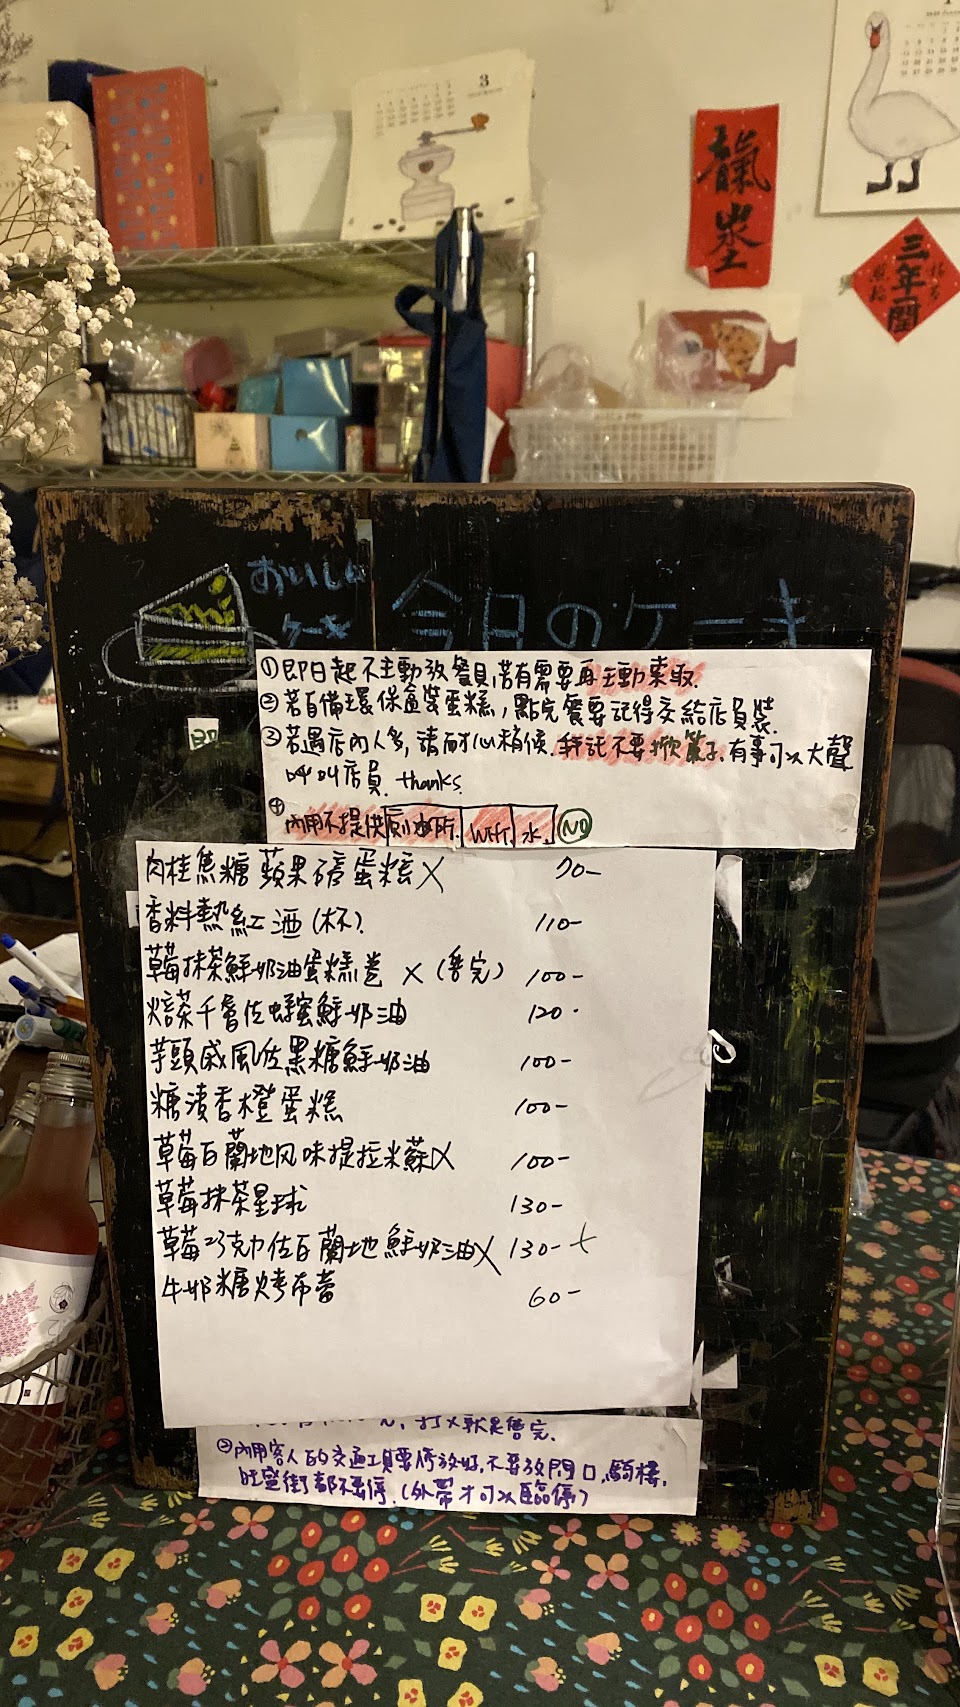 3
馨氣
三年一閏
おいしい
ケーキ
今日のケーキ
①即日起不主動放餐具,若有需要再主動索取.
②若自備環保盒裝蛋糕,點完餐要記得交給店員裝.
③若遇店內人多,請耐心稍候.拜託不要掀簾子.有事可以大聲
呼叫店員. thanks.
④內用不提供廁所.WIFI.水.NO
肉桂焦糖蘋果磅蛋糕X 70-
香料熱紅酒(杯) 110-
草莓抹茶鮮奶油蛋糕卷 X(售完) 100-
焙茶千層佐蜂蜜鮮奶油 120.
芋頭戚風佐黑糖鮮奶油 100-
糖漬香橙蛋糕 100-
草莓白蘭地风味提拉米蘇X 100-
草莓抹茶星球 130-
草莓巧克力佐白蘭地鮮奶油X 130-
牛奶糖烤布蕾 60-
打X就是售完.
②內用客人的交通工具要停放好,不要放門口,騎樓,
旺盛街都不要停.(外帶才可以臨停)